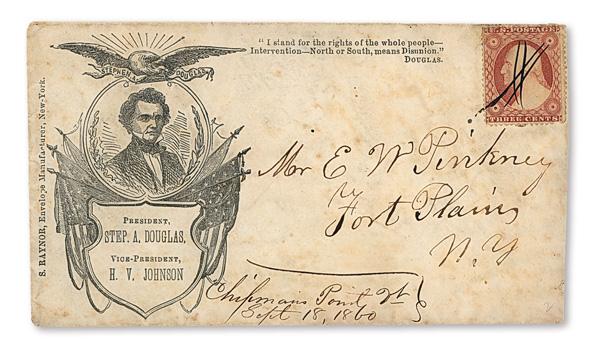 " I stand for the rights of the whole people—
Intervention—North or South, means Disunion."
DOUGLAS.
U.S. POSTAGE
THREE CENTS
STEPHEN A. DOUGLAS
S. RAYNOR, Envelope Manufacturer, New-York.
PRESIDENT,
STEP. A. DOUGLAS,
VICE-PRESIDENT,
H. V. JOHNSON
Mr E W Pinkney
Fort Plains
N.Y
Chipmans Point Vt
Sept 18, 1860